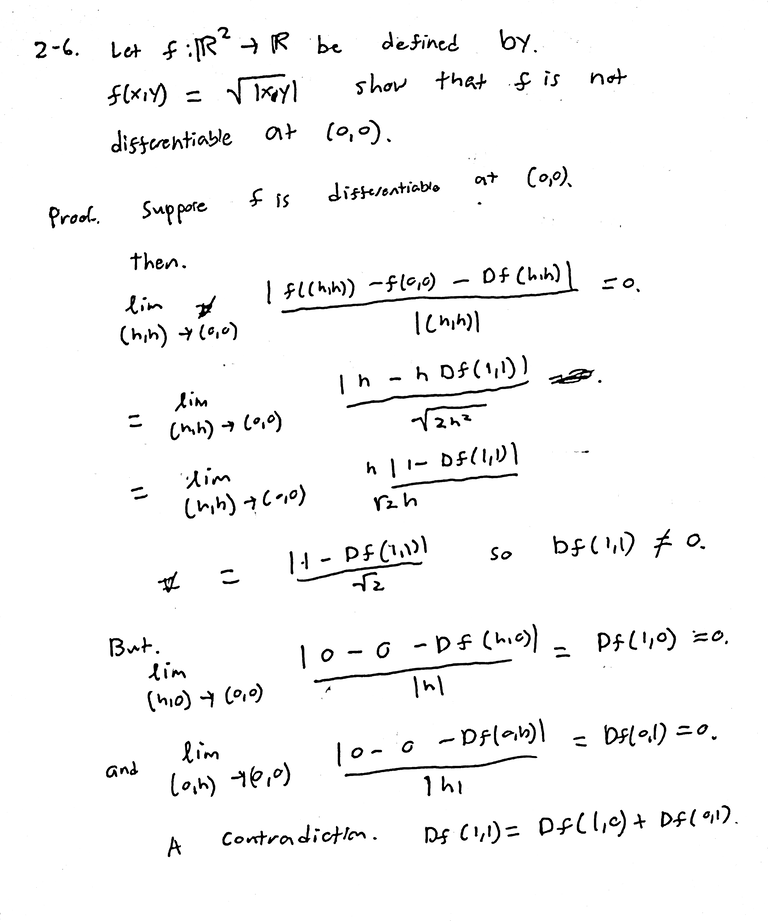 2-6. Let f : ℝ² → ℝ be defined by.
f(x,y) = √|x·y| show that f is not
differentiable at (0,0).
Proof. Suppose f is differentiable at (0,0).
then.
lim (h,h) → (0,0) |f((h,h)) - f(0,0) - Df(h,h)| / |(h,h)| = 0.
= lim (h,h) → (0,0) |h - h Df(1,1)| / √2h² .
= lim (h,h) → (0,0) h |1 - Df(1,1)| / √2 h
= |1 - Df(1,1)| / √2 so Df(1,1) ≠ 0.
But.
lim (h,0) → (0,0) |0 - 0 - Df(h,0)| / |h| = Df(1,0) = 0.
and lim (0,h) → (0,0) |0 - 0 - Df(0,h)| / |h| = Df(0,1) = 0.
A contradiction. Df(1,1) = Df(1,0) + Df(0,1).